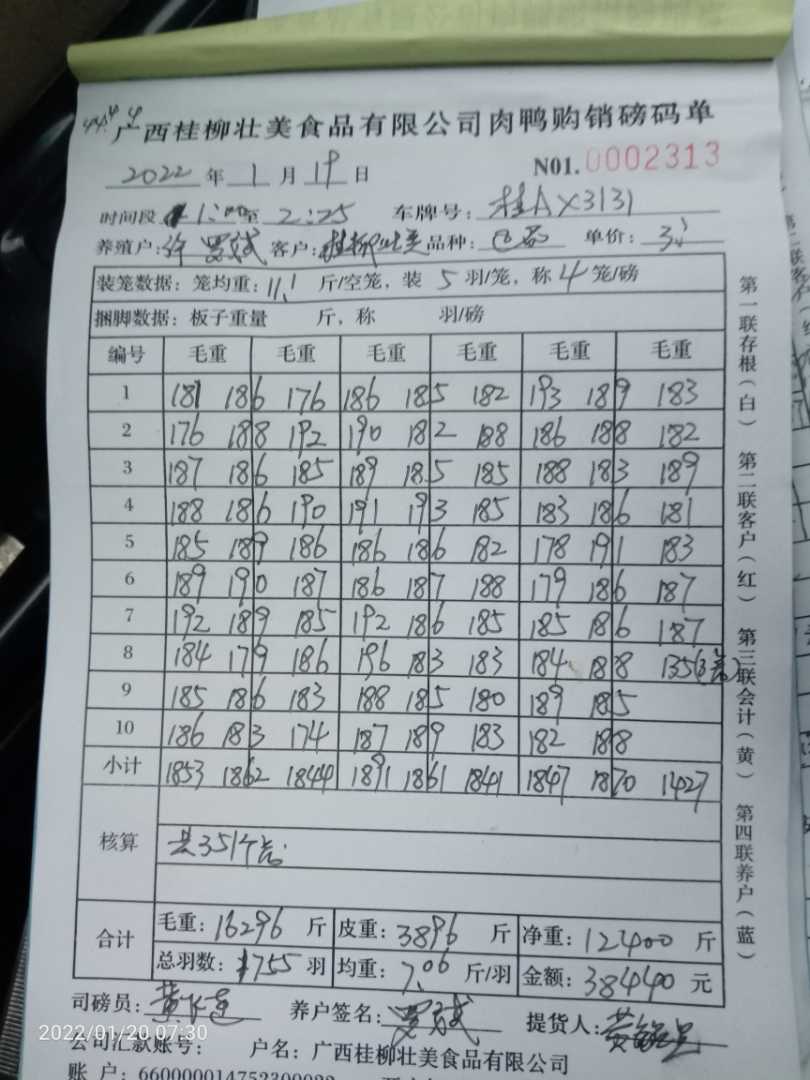 44.4
广西桂柳壮美食品有限公司肉鸭购销磅码单
2022 年 1 月 19 日 N01. 0002313
时间段 1:00 至 2:25 车牌号: 桂AX3131
养殖户: 罗斌 客户: 桂柳壮美 品种: 单价:
装笼数据: 笼均重: 11.1 斤/空笼, 装 5 羽/笼, 称 4 笼/磅
捆脚数据: 板子重量 斤, 称 羽/磅
编号 毛重 毛重 毛重 毛重 毛重 毛重
1 181 186 176 186 185 182 193 189 183
2 176 188 192 190 182 188 186 188 182
3 187 186 185 189 185 185 188 183 189
4 188 186 190 191 193 185 183 186 181
5 185 189 186 186 186 182 178 191 183
6 189 190 187 186 187 188 179 186 187
7 192 189 185 192 186 185 185 186 187
8 184 179 186 196 183 183 184 188 135(3笼)
9 185 186 183 188 185 180 189 185
10 186 183 174 187 189 183 182 188
小计 1853 1862 1844 1891 1861 1841 1847 1870 1427
核算 共351个笼
合计 毛重: 16296 斤 皮重: 3896 斤 净重: 12400 斤
总羽数: 1755 羽 均重: 7.06 斤/羽 金额: 38440 元
司磅员: 养户签名: 罗斌 提货人:
公司汇款账号: 户名: 广西桂柳壮美食品有限公司
账 户: 660000014752300022
第一联存根(白) 第二联客户(红) 第三联会计(黄) 第四联养户(蓝)
2022/01/20 07:30